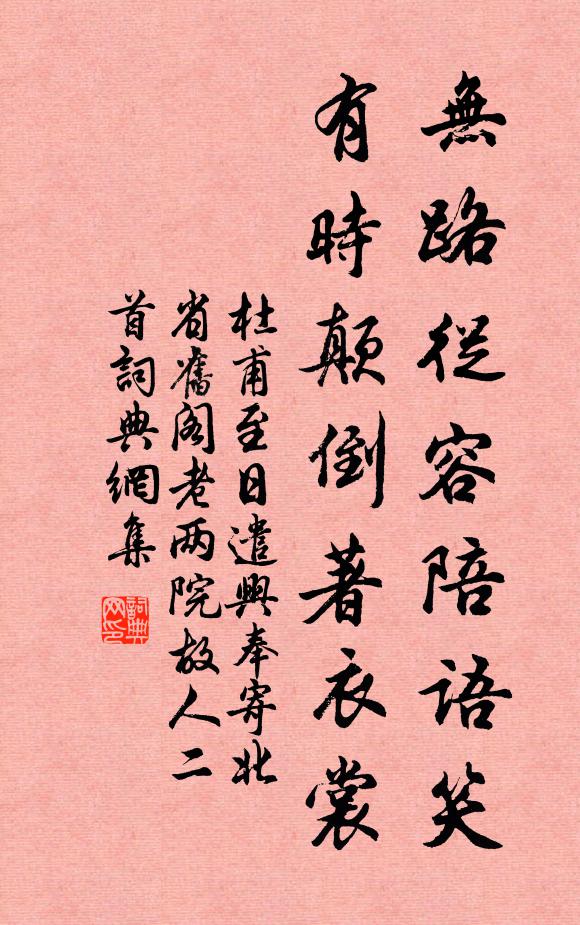 無路從容陪語笑
有時顛倒著衣裳
杜甫至日遣興奉寄北
省舊閣老兩院故人二
首詞典網集
詞典网印